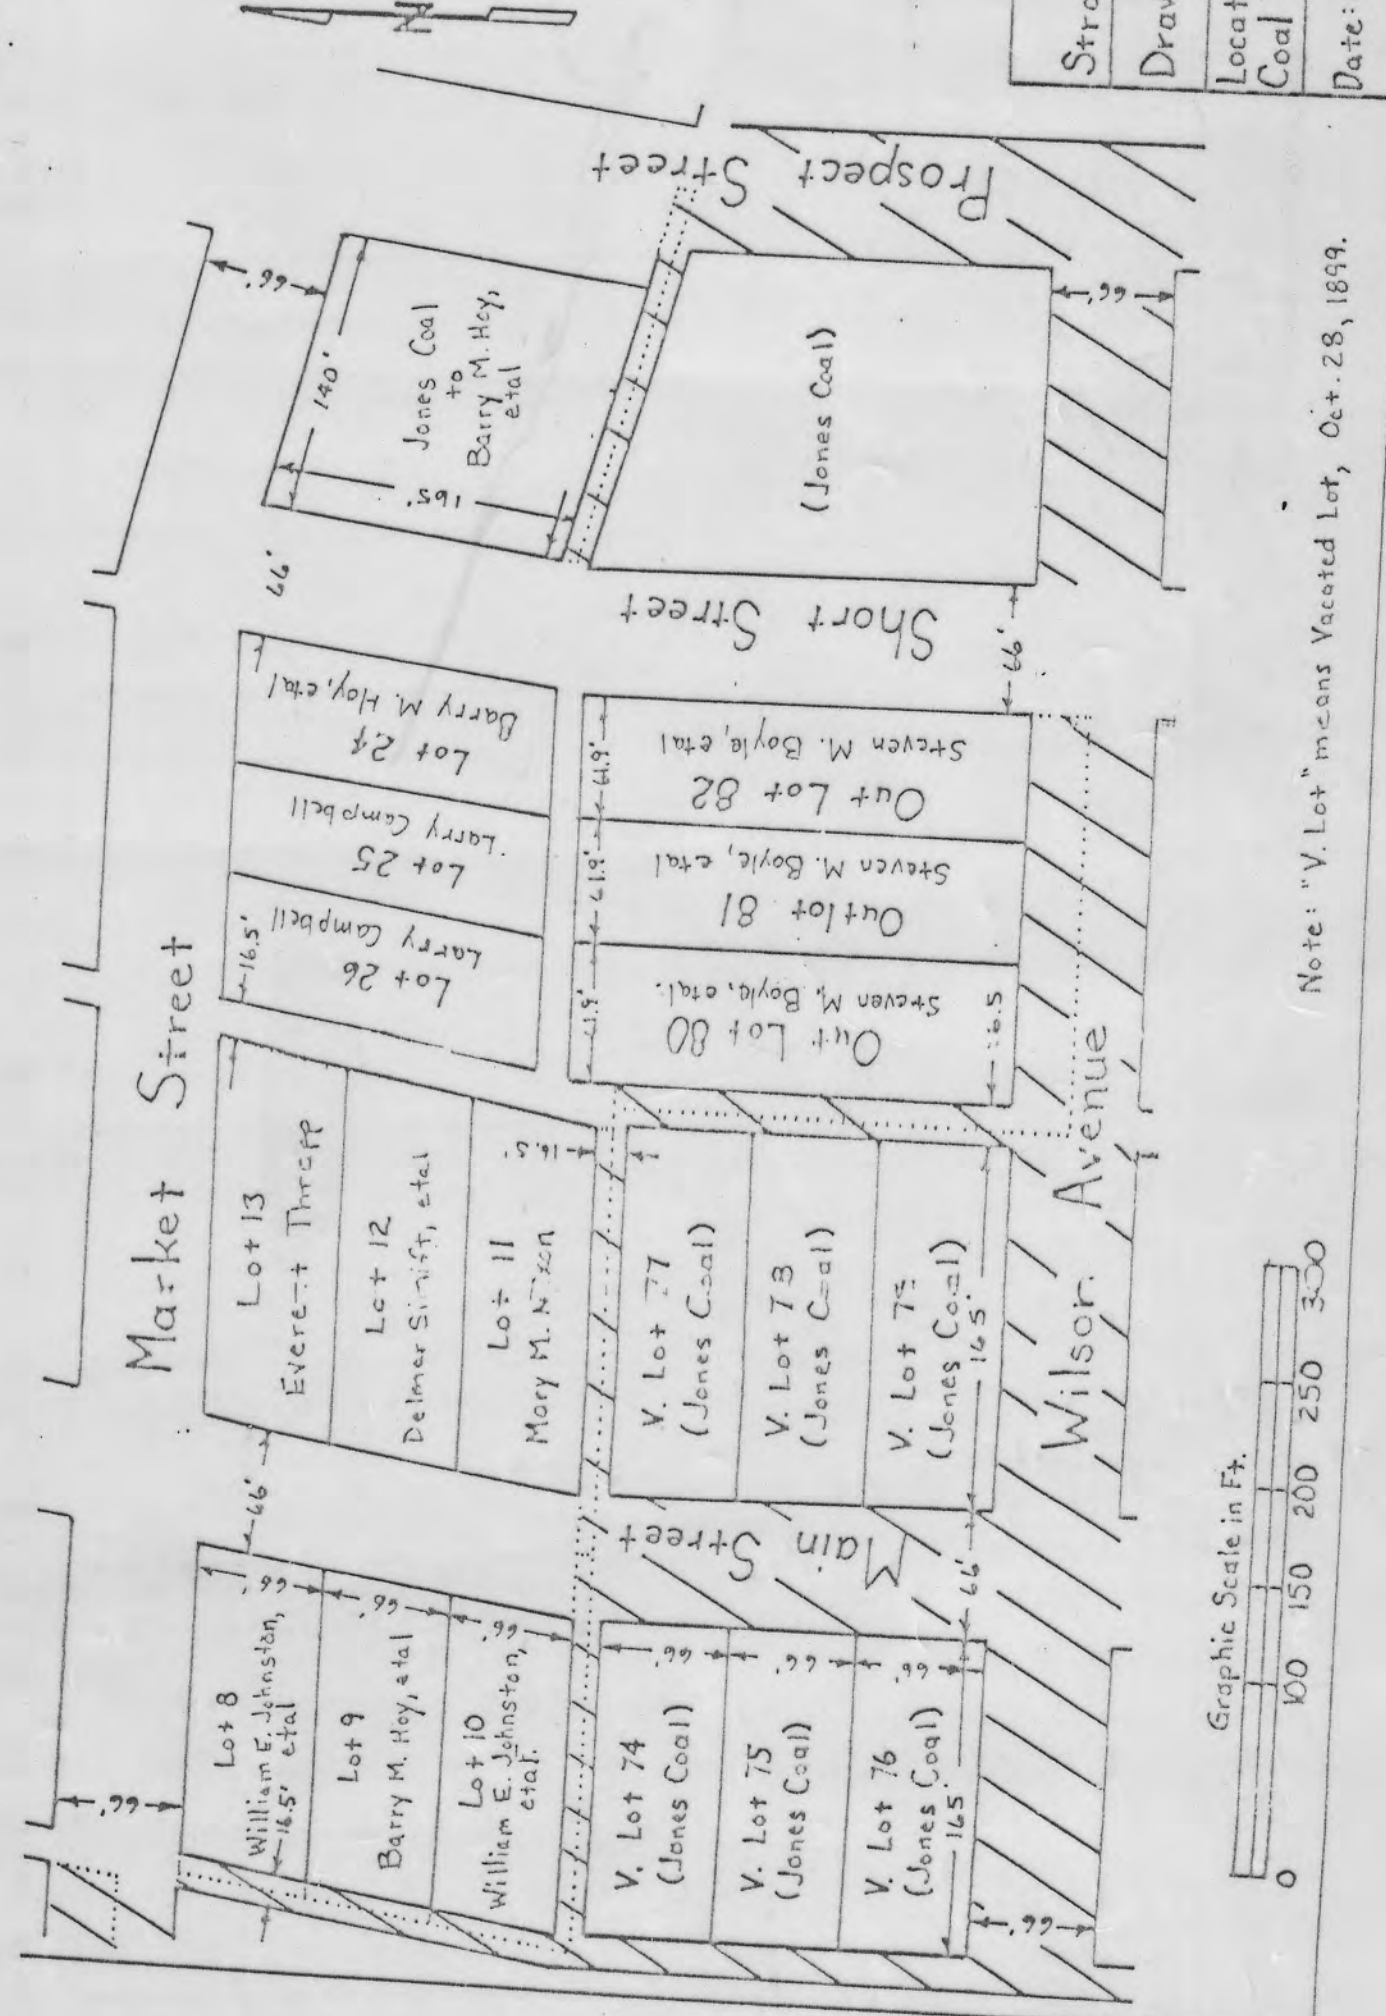 N
Stra
Draw
Locat
Coal
Date:
Market Street
Prospect Street
Short Street
Main Street
Wilson Avenue
66'
140'
165'
Jones Coal
to
Barry M. Hoy,
etal
(Jones Coal)
66'
66'
66'
Lot 24
Barry M. Hoy, etal
Lot 25
Larry Campbell
Lot 26
Larry Campbell
16.5'
61.9'
61.9'
61.9'
Out Lot 82
Steven M. Boyle, etal
Outlot 81
Steven M. Boyle, etal
Out Lot 80
Steven M. Boyle, etal.
16.5
Lot 13
Everett Thrapp
Lot 12
Delmer Sinift, etal
Lot 11
Mary M. Nixon
16.5'
V. Lot 77
(Jones Coal)
V. Lot 78
(Jones Coal)
V. Lot 79
(Jones Coal)
165'
66'
66'
Lot 8
William E. Johnston,
etal
16.5'
66'
Lot 9
Barry M. Hoy, etal
66'
Lot 10
William E. Johnston,
etal.
66'
66'
V. Lot 74
(Jones Coal)
66'
V. Lot 75
(Jones Coal)
66'
V. Lot 76
(Jones Coal)
66'
165'
66'
66'
Graphic Scale in Ft.
0 100 150 200 250 300
Note: "V. Lot" means Vacated Lot, Oct. 28, 1899.